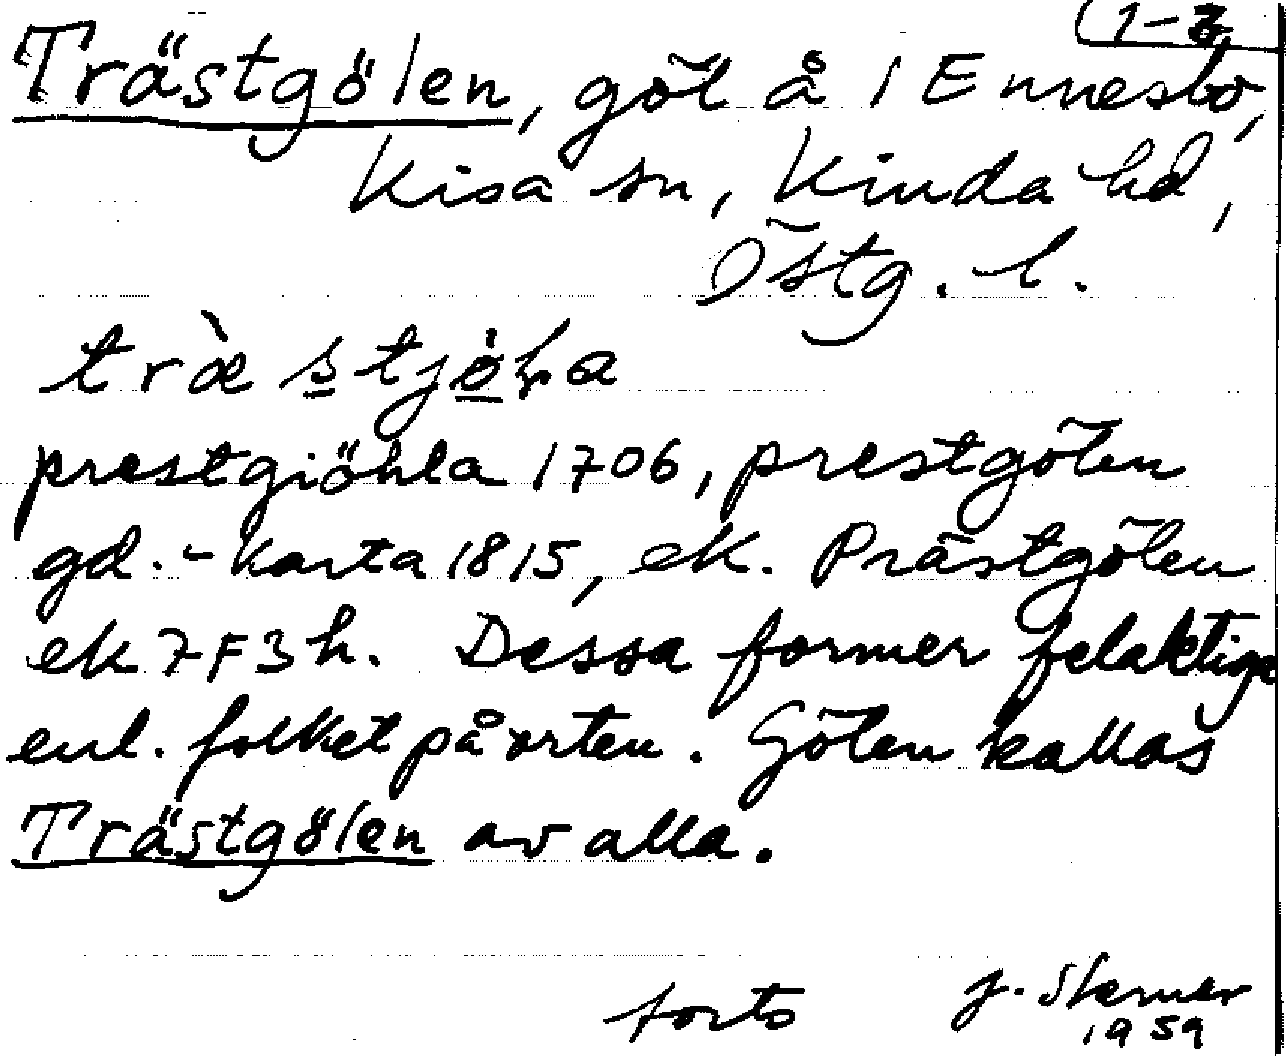 1-3
Trästgölen, göl å i Ennesbo,
Kisa sn, Kinda hd,
Östg. l.
træ̀stjöla
prestgiöhla 1706, prestgölen
gd.-karta 1815, ek. Prästgölen
ek 7F3h. Dessa former felaktiga
enl. folket på orten. Gölen kallas
Trästgölen av alla.
forts J. Starner
1959